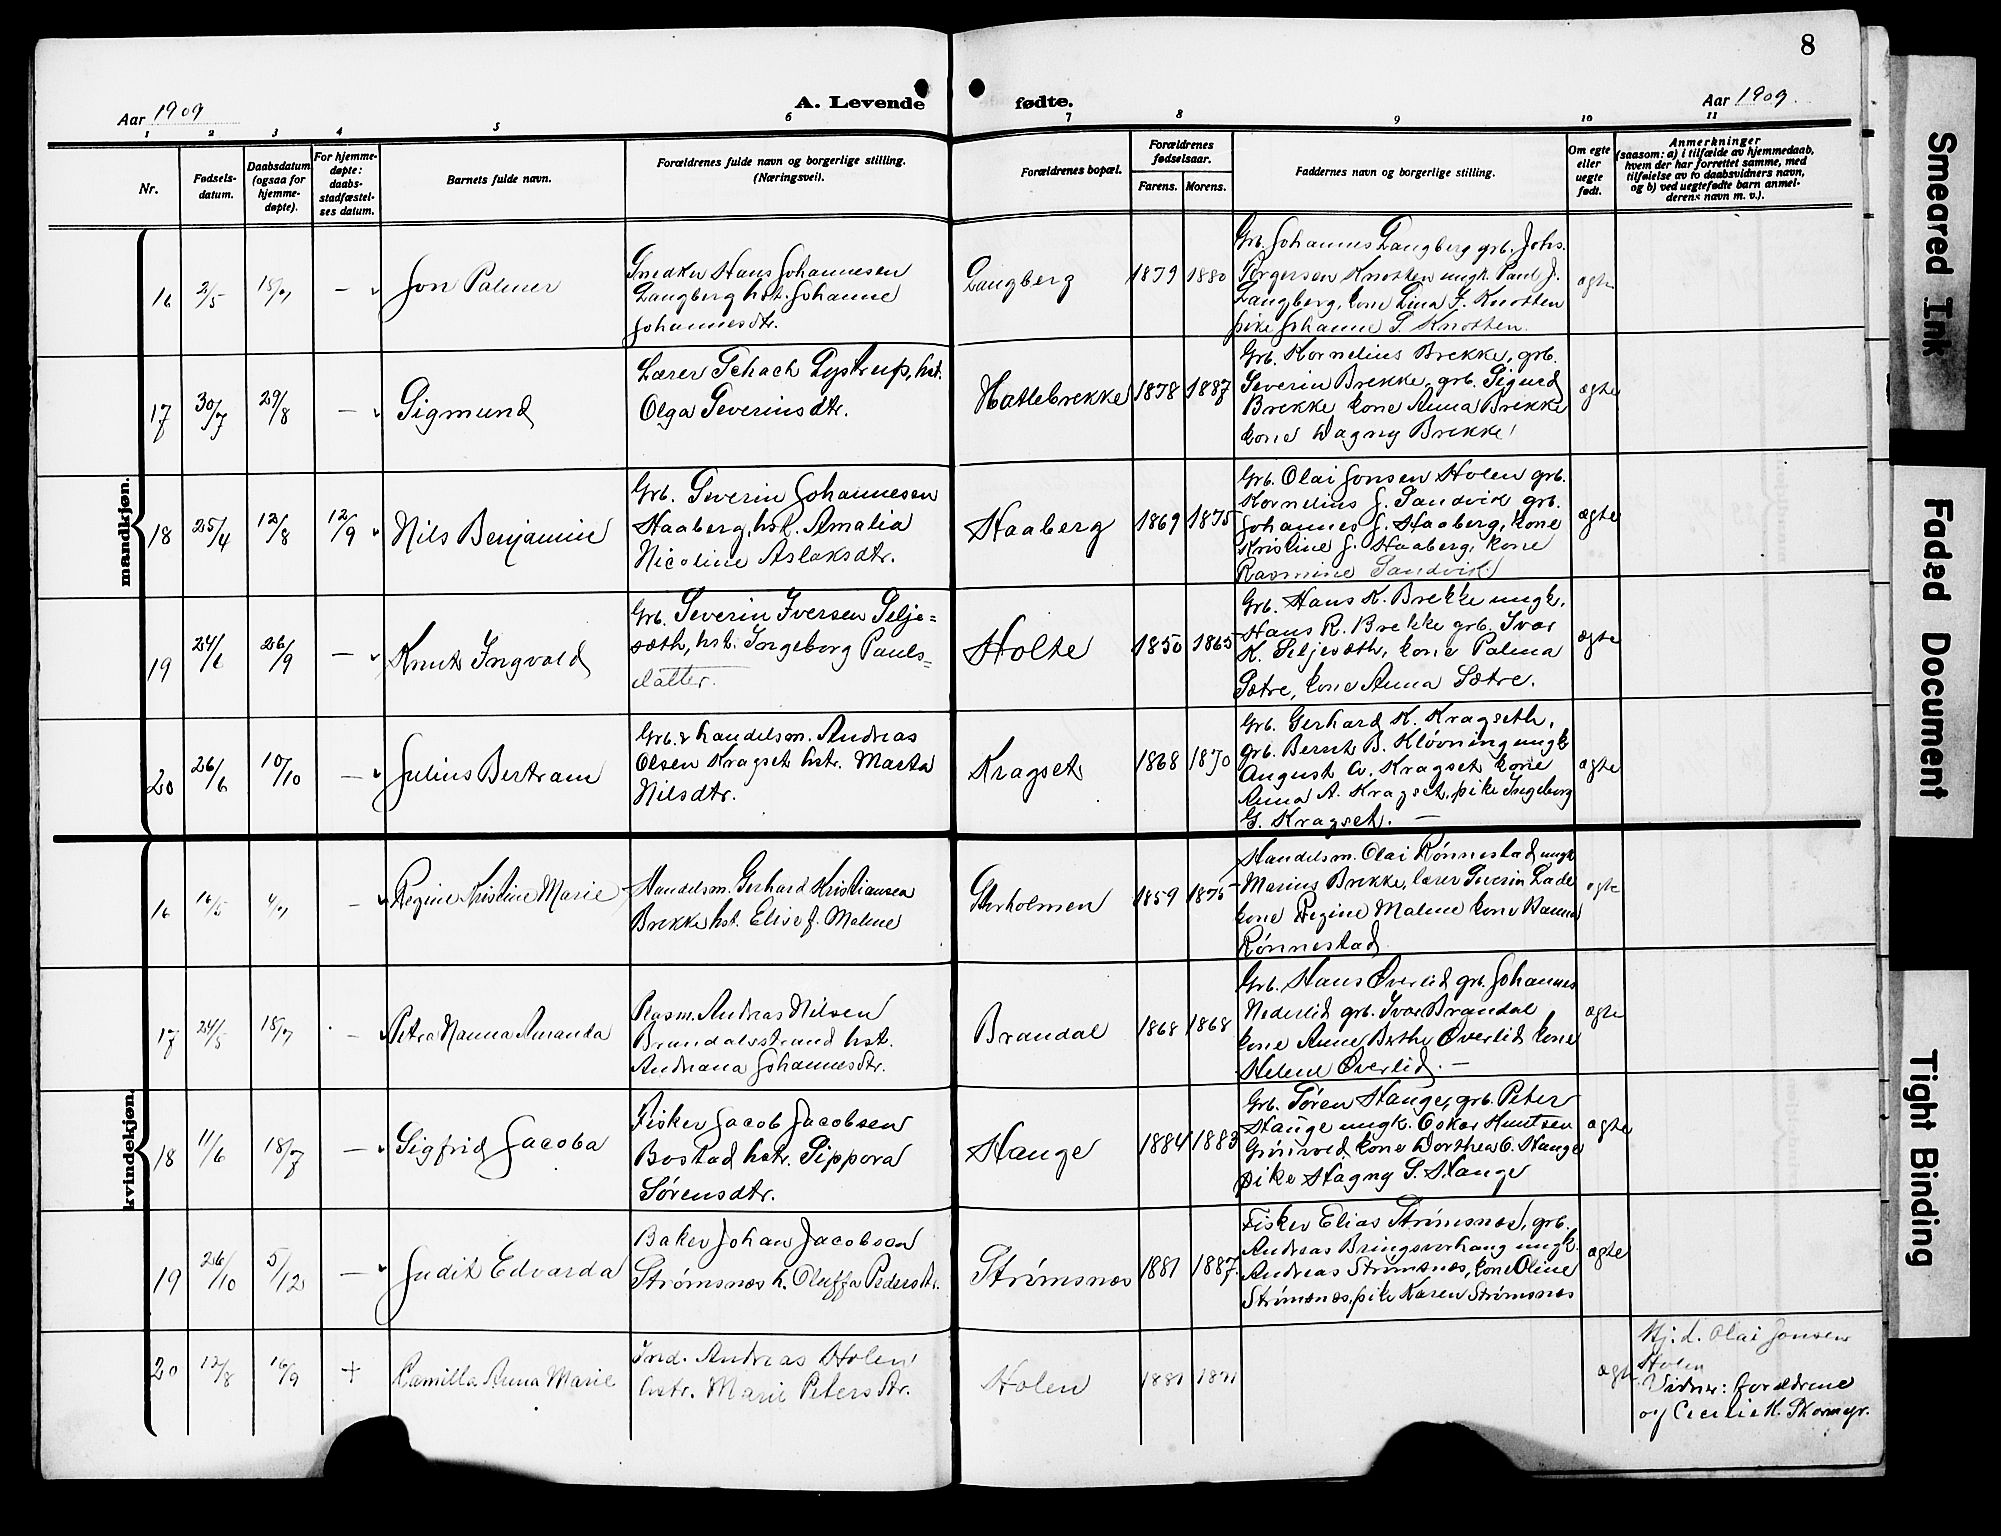 8
Aar 1909
A. Levende
fødte.
Aar 1909.
1
2
3
4
5
6
7
8
9
10
11
Nr.
Fødsels-
datum.
Daabsdatum
(ogsaa for
hjemme-
døpte).
For hjemme-
døpte:
daabs-
stadfæstel-
ses datum.
Barnets fulde navn.
Forældrenes fulde navn og borgerlige stilling.
(Næringsvei).
Forældrenes bopæl.
Forældrenes
fødselsaar.
Farens.
Morens.
Faddernes navn og borgerlige stilling.
Om egte
eller
uegte
født.
Anmerkninger
(saasom: a) i tilfælde av hjemmedaab,
hvem der har forrettet samme, med
tilføielse av to daabsvidners navn,
og b) ved uegtefødte barn anmel-
derens navn m. v.).
mandkjøn.
16
2/5
18/7
—
Jon Palmer
Snedker Hans Johannesen
Langberg hst. Johanne
Johannesdtr.
Langberg
1879
1880
Grb. Johannes Langberg grb. Johs.
Torgersen Knotten ungk. Paul J.
Langberg, kone Lina J. Knotten
pike Johanne S. Knotten.
ægte
17
30/7
29/8
—
Sigmund
Lærer Schach Lystrup, hst.
Olga Severinsdtr.
Hatlebrekke
1878
1887
Grb. Kornelius Brekke, grb.
Severin Brekke, grb. Sigurd
Brekke kone Anna Brekke
kone Dagny Brekke
ægte
18
25/4
12/8
12/9
Nils Benjamin
Grb. Severin Johannesen
Haaberg, hst. Amalia
Nicoline Aslaksdtr.
Haaberg
1869
1875
Grb. Olai Jonsen Holen grb.
Kornelius J. Sandvik grb.
Johannes J. Haaberg, kone
Kristine J. Haaberg, kone
Rasmine Sandvik
ægte
19
24/6
26/9
—
Knut Ingvald
Grb. Severin Iversen Selje=
sæth, hst. Ingeborg Pauls=
datter.
Holte
1850
1865
Grb. Hans K. Brekke ungk.
Hans R. Brekke grb. Ivar
K. Seljesæth, kone Palma
Sætre, kone Anna Sætre.
ægte
20
26/6
10/10
—
Julius Bertram
Grb. & handelsm. Andreas
Olsen Kragset hstr. Marta
Nilsdtr.
Kragset
1868
1870
Grb. Gerhard K. Kragseth,
grb. Bernt B. Kløvning ungk
August A. Kragset kone
Anna A. Kragset, pike Ingeborg
G. Kragset. —
ægte
kvindekjøn.
16
16/5
4/7
—
Regine Kristine Marie
Handelsm. Gerhard Kristiansen
Brekke hst. Elise J. Malene
Storholmen
1859
1875
Handelsm. Olai Rønnestad ungk
Marius Brekke, lærer Severin Lade
kone Regine Malene kone Hanna
Rønnestad
ægte
17
24/5
18/7
—
Petra Nanna Amanda
Rasm. Andreas Nilsen
Brandalsstrand hst.
Andriana Johannesdtr.
Brandal
1868
1868
Grb. Hans Øverlid grb. Johannes
Nederlid grb. Ivar Brandal
kone Anne Berthe Øverlid kone
Helene Øverlid. —
ægte
18
11/6
18/7
—
Sigfrid Jacoba
Fisker Jacob Jacobsen
Bostad hstr. Sippora
Sørensdtr.
Hauge
1884
1883
Grb. Søren Hauge, grb. Peter
Hauge ungk. Oskar Knutsen
kone Dorthea O. Hauge
pike Hagny S. Hauge
ægte
19
26/10
5/12
—
Judit Edvarda
Baker Johan Jacobsen
Strømsnæs h. Oluffa Pedersdtr.
Strømsnæs
1881
1887
Fisker Elias Strømsnæs, grb.
Andreas Bringsvorhaug ungk.
Andreas Strømsnæs, kone Oline
Strømsnæs, pike Karen Strømsnæs
ægte
20
12/8
16/9
+
Camilla Anna Marie
Ind. Andreas Holen,
hstr. Marie Petersdtr.
Holen
1881
1871
ægte
Hj. d. Olai Jonsen
Holen
Vidner: forældrene
og Cecilie H. Skormyr.
Smeared Ink
Faded Document
Tight Binding